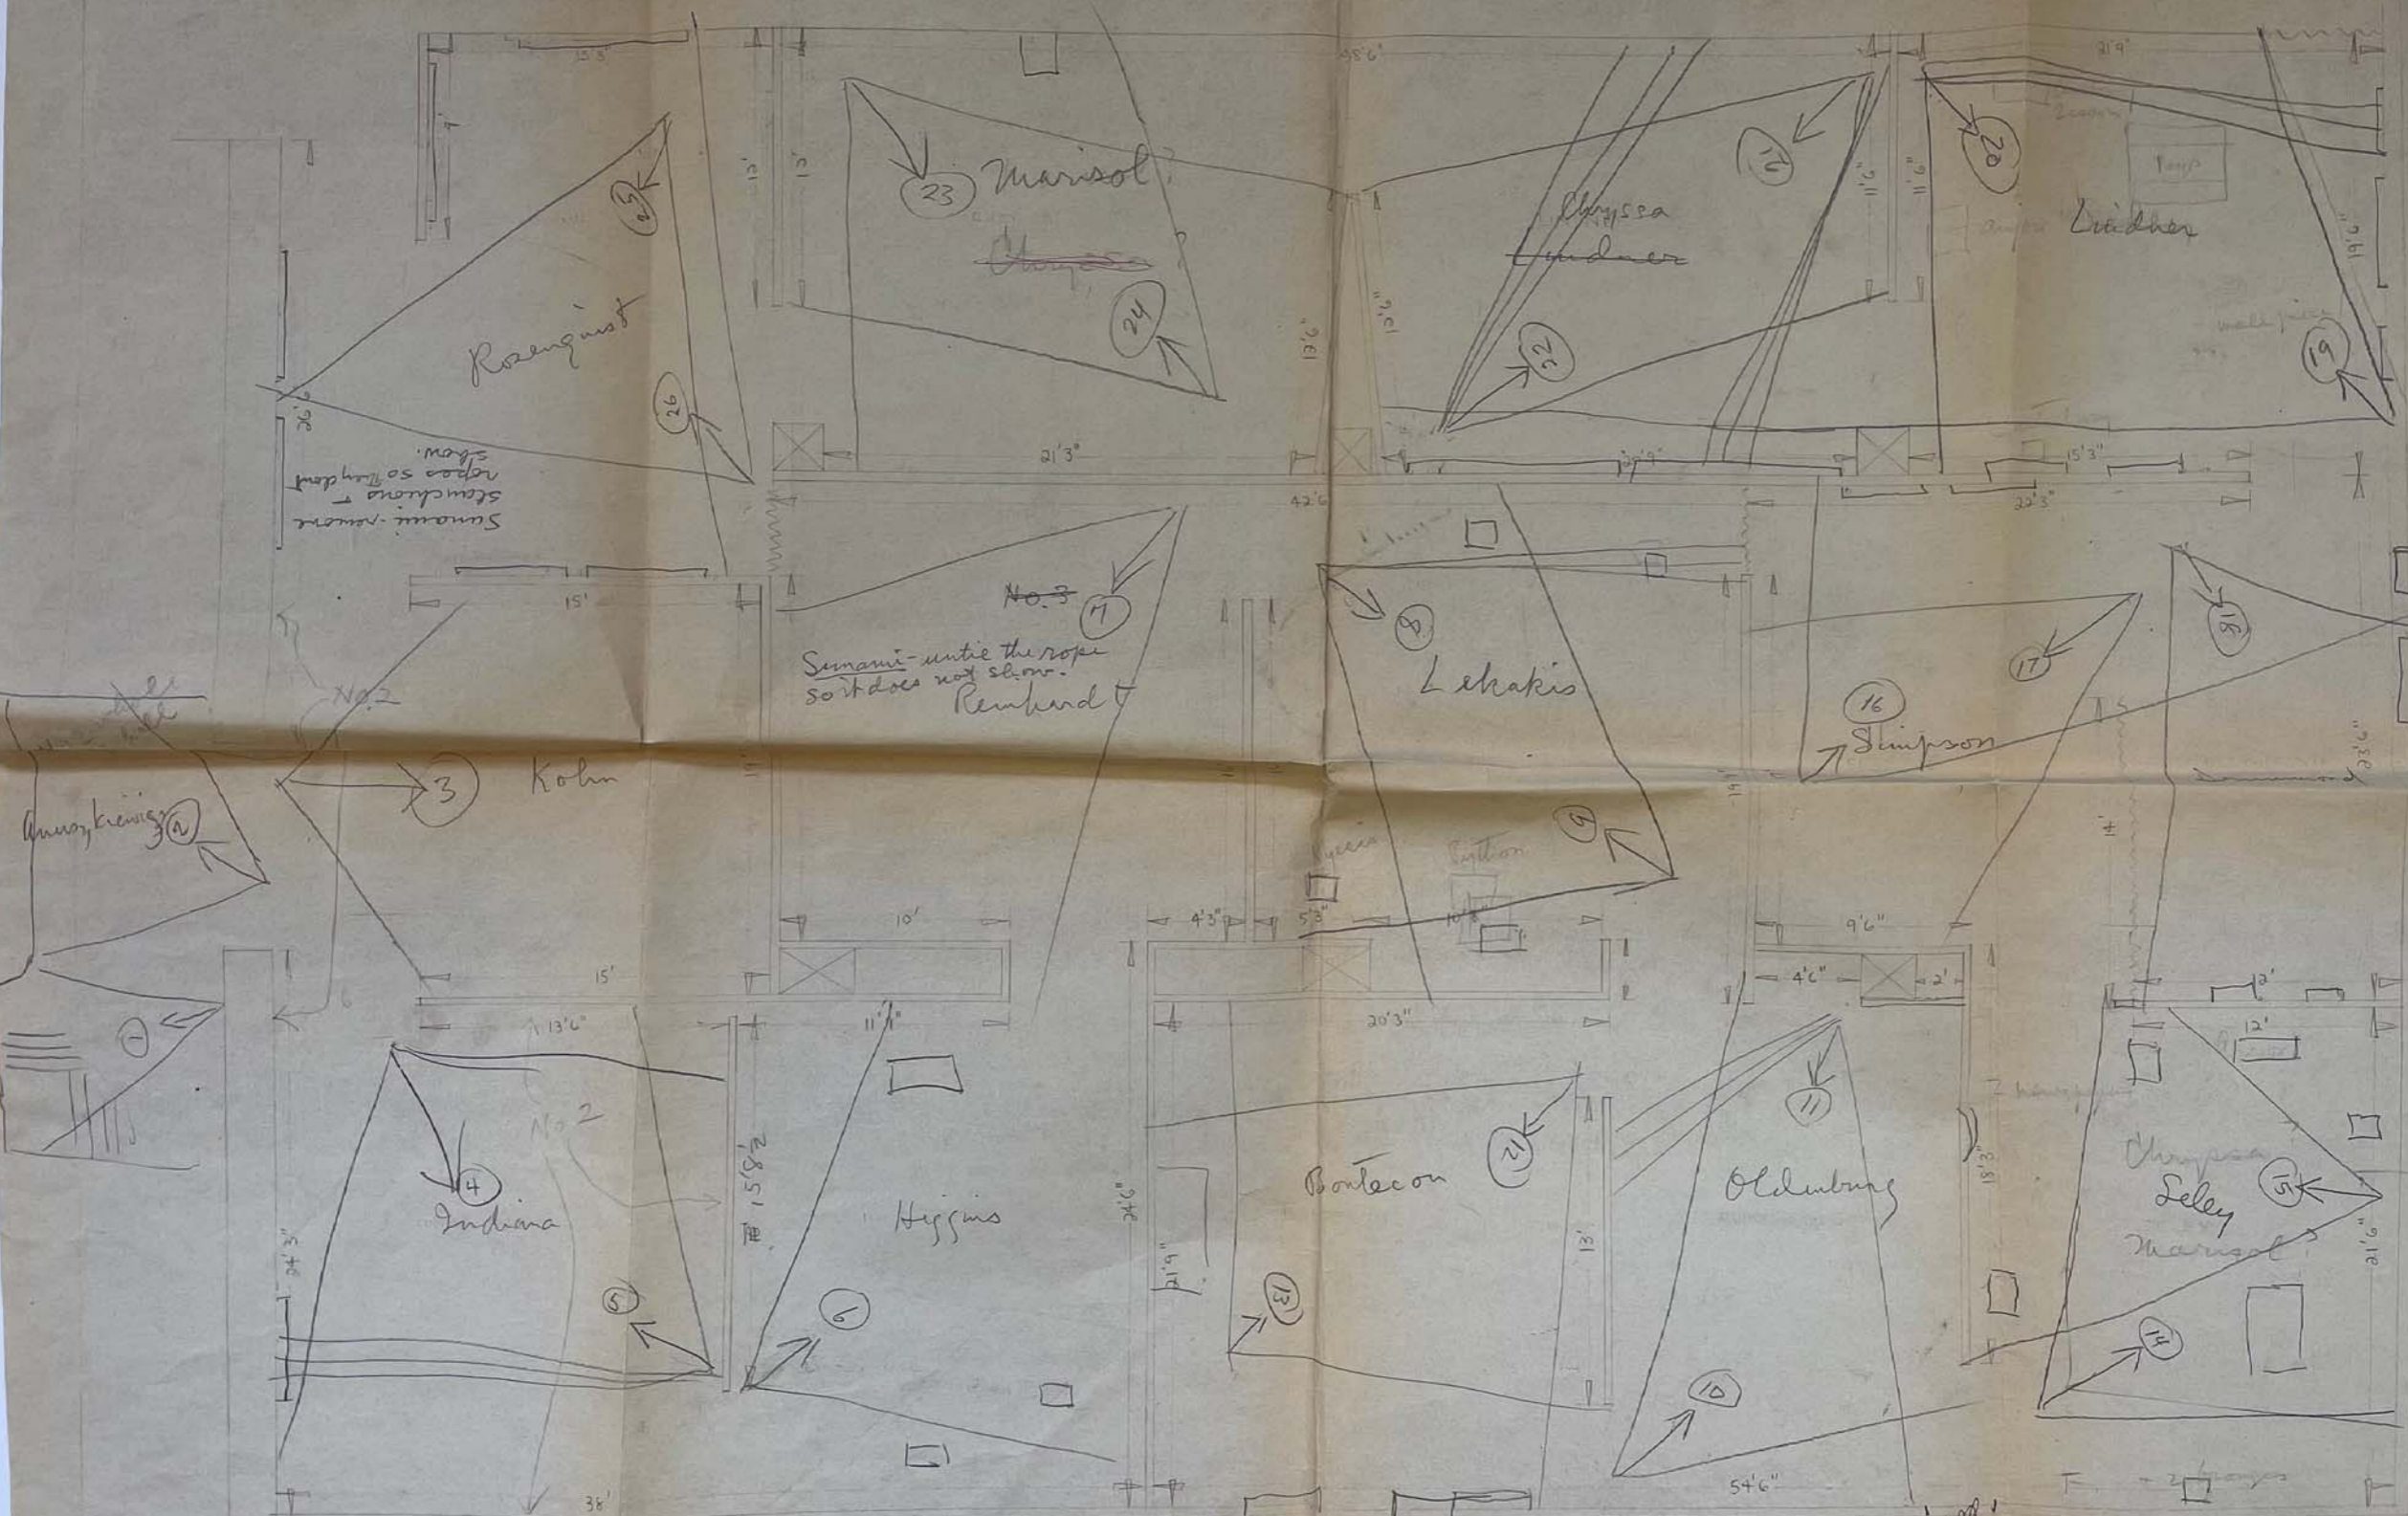 15'3"
98'6"
21'9"
9'
13'
13'
23
Marisol?
Chryssa
24
25
Rosenquist
26
26'6"
Sunami-remove
stanchions +
ropes so they dont
show.
21'3"
12'6"
12'6"
Chryssa
Lindner
21
22
11'6"
11'6"
20
Lindner
19'6"
19
15'3"
42'6
22'3"
15'
No. 3
7
Sunami-untie the rope
so it does not show.
Reinhardt
8
Lekakis
9
17
16
Simpson
18
23'6"
No.2
Anuszkiewicz
2
3
Kohn
19'
19'
11'
10'
4'3"
5'3"
Python
9'6"
4'6"
2'
12'
12'
1
15'
13'6"
20'3"
No 2
4
Indiana
5
24'3"
15'8½
Higgins
6
24'6"
21'9"
Bontecou
12
13
13'
11
Oldenburg
10
18'3"
Chryssa
Seley
Marisol?
15
14
21'6"
38'
54'6"